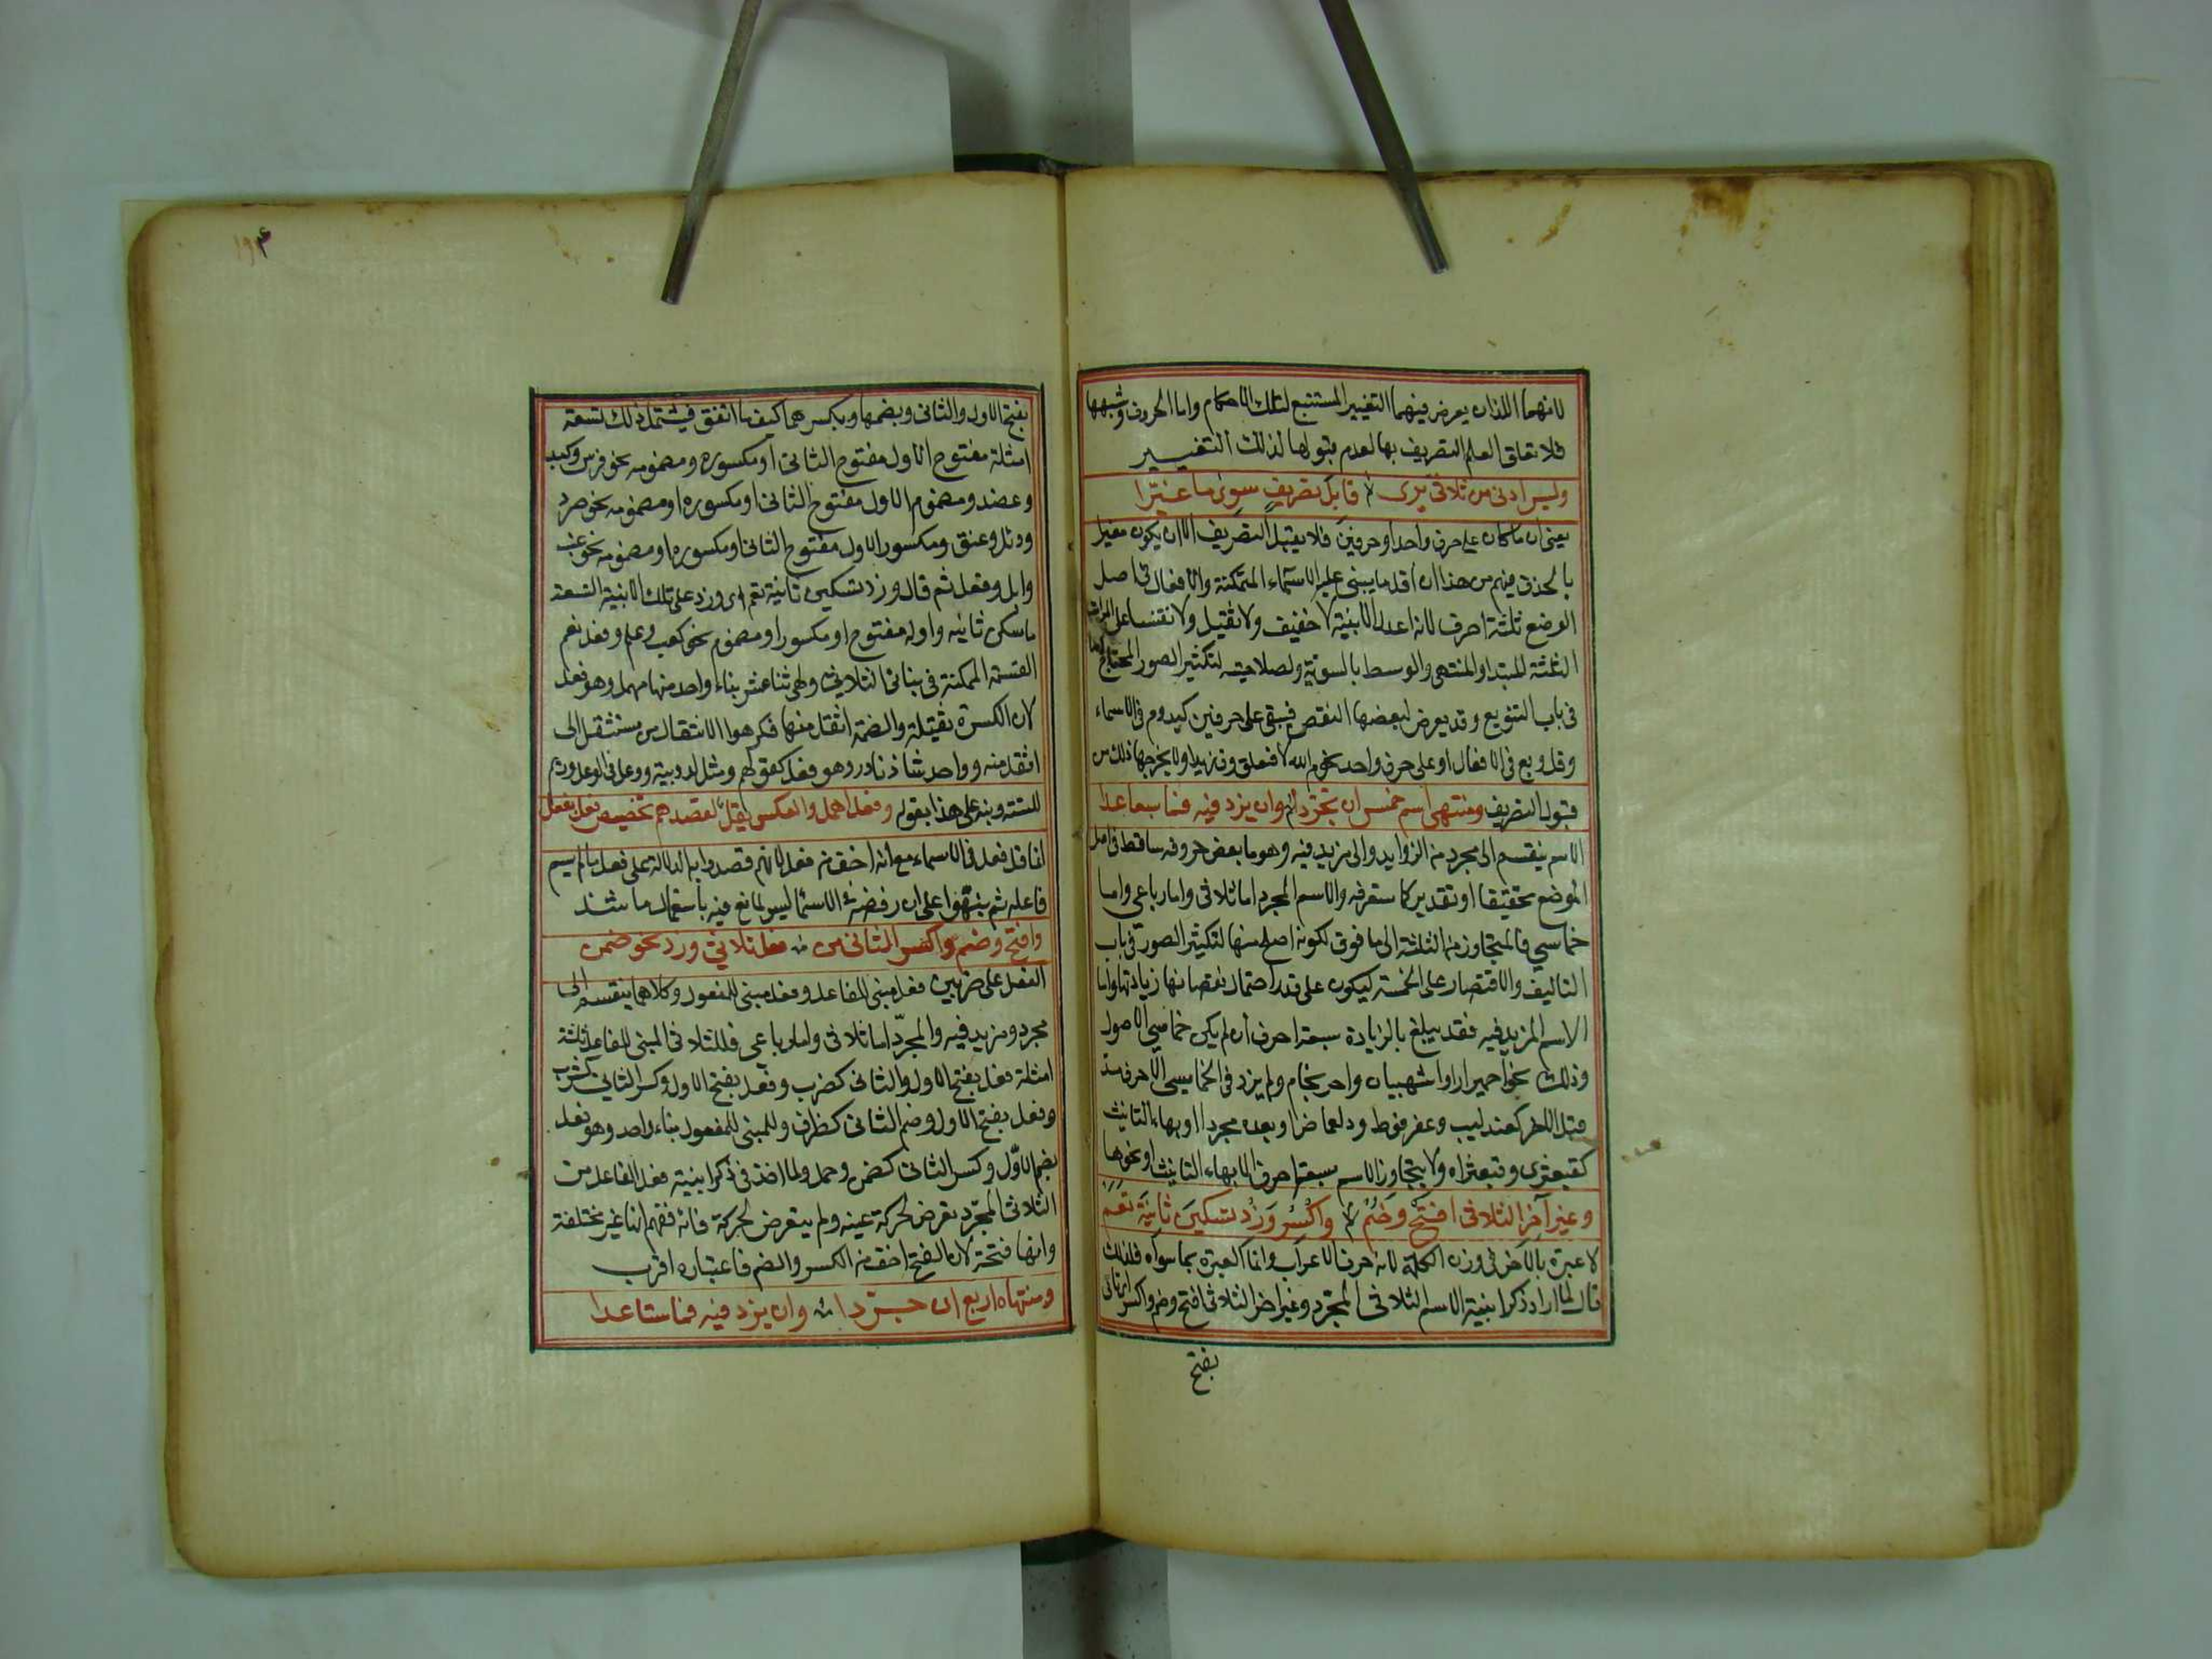 لانهما اللذان يعرض فيهما التغيير المستتبع لتلك الاحكام واما الحروف وشبهها
فلا تعلق لعلم التصريف بها لعدم قبولها لذلك التغيير
وليس ادنى من ثلاثي يرى قابل تصريف سوى ما غيرا
يعني ان ما كان على حرف واحد او حرفين فلا يقبل التصريف الا ان يكون مغيرا
بالحذف فيفهم من هذا ان اقل ما يبنى عليه الاسماء المتمكنة والافعال في اصل
الوضع ثلثة احرف لانه اعدل الابنية لا خفيف ولا ثقيل ولانقسامه على المراتب
الثلثة المبتدا والمنتهى والوسط بالسوية ولصلاحيته لتكثير الصور المحتاج اليها
في باب التنويع وقد يعرض لبعضها النقص فيبقى على حرفين كيد ودم في الاسماء
وقل وبع في الافعال او على حرف واحد نحو م الله لافعلن وق زيدا ولا يخرجها ذلك من
قبول التصريف ومنتهى اسم خمس ان تجردا وان يزد فيه فما سبعا عدا
الاسم ينقسم الى مجرد من الزوايد والى مزيد فيه وهو ما بعض حروفه ساقط في اصل
الموضع تحقيقا او تقديرا كما ستعرفه والاسم المجرد اما ثلاثي واما رباعي واما
خماسي فالمتجاوز من الثلثة الى ما فوق لكونه اصلح منها لتكثير الصور في باب
التاليف والاقتصار على الخمسة ليكون على قدر احتمال نقصانها زيادتها واما
الاسم المزيد فيه فقد يبلغ بالزيادة سبعة احرف ان لم يكن خماسي الاصول
وذلك نحو احميرار واشهيباب واحرنجام ولم يزد في الخماسي الا حرف مد
قبل الاخر كعندليب وعضرفوط ودلعماض او بعده مجردا او بهاء التانيث
كقبعثرى وقبعثراه ولا يتجاوز الاسم سبعة احرف الا بهاء التانيث او نحوها
وغير آخر الثلاثي افتح وضم واكسر وزد تسكين ثانيه تعم
لا عبرة بالآخر في وزن الكلمة لانه حرف الاعراب وانما العبرة بما سواه فلذلك
قال لما اراد ذكر ابنية الاسم الثلاثي المجرد وغير اخر الثلاثي افتح وضم واكسر
بفتح
بفتح الاول والثاني وبضمهما وبكسرهما كيف ما اتفق فيشتمل ذلك تسعة
امثلة مفتوح الاول مفتوح الثاني او مكسوره ومضمومه نحو فرس وكبد
وعضد ومضموم الاول مفتوح الثاني او مكسوره او مضمومه نحو صرد
ودئل وعنق ومكسور الاول مفتوح الثاني او مكسوره او مضمومه نحو عنب
وابل وفعل ثم قال وزد تسكين ثانيه تعم اي وزد على تلك الابنية التسعة
ما سكن ثانيه واوله مفتوح او مكسور او مضموم نحو كعب وعلم وقفل تعم
القسمة الممكنة في بناء الثلاثي وهي اثنا عشر بناء واحد منها مهمل وهو فعل
لان الكسرة ثقيلة والضمة اثقل منها فكرهوا الانتقال من مستثقل الى
اثقل منه وواحد شاذ نادر وهو فعل كقولهم دئل لدويبة ووعل في الوعل ورئم
للسته ونبه على هذا بقوله وفعل اهمل والعكس يقل لقصدهم تخصيص فعل بفعل
انما قل فعل في الاسماء مع انه اخف من فعل لانهم قصدوا به الدلالة على فعل ما لم يسم
فاعله ثم نبهوا على ان رفضه في الاسما ليس لمانع فيه باستعمال ما شذ
وافتح وضم واكسر الثاني من فعل ثلاثي وزد نحو ضمن
الفعل على ضربين فعل مبني للفاعل وفعل مبني للمفعول وكلاهما ينقسم الى
مجرد ومزيد فيه والمجرد اما ثلاثي واما رباعي فللثلاثي المبني للفاعل ثلثة
امثلة فعل بفتح الاول والثاني كضرب وفعل بفتح الاول وكسر الثاني كشرب
وفعل بفتح الاول وضم الثاني كظرف وللمبني للمفعول بناء واحد وهو فعل
بضم الاول وكسر الثاني كضمن وحمل ولما اخذ في ذكر ابنية فعل الفاعل من
الثلاثي المجرد تعرض لحركة عينه ولم يتعرض لحركة فائه ففهم انها غير مختلفة
وانها فتحة لان الفتح اخف من الكسر والضم فاعتباره اقرب
ومنتهاه اربع ان جردا وان يزد فيه فما ستا عدا